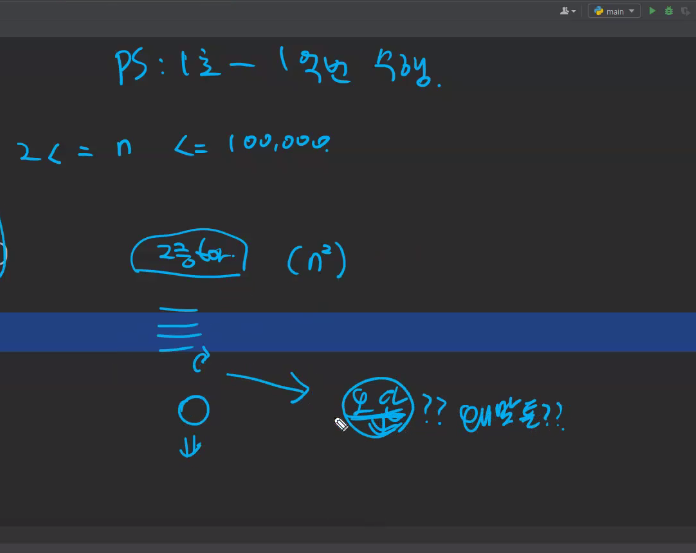 main
PS : 1초 - 1억번 수행.
2 <= n <= 100,000
2중 for. (n²)
?? ??